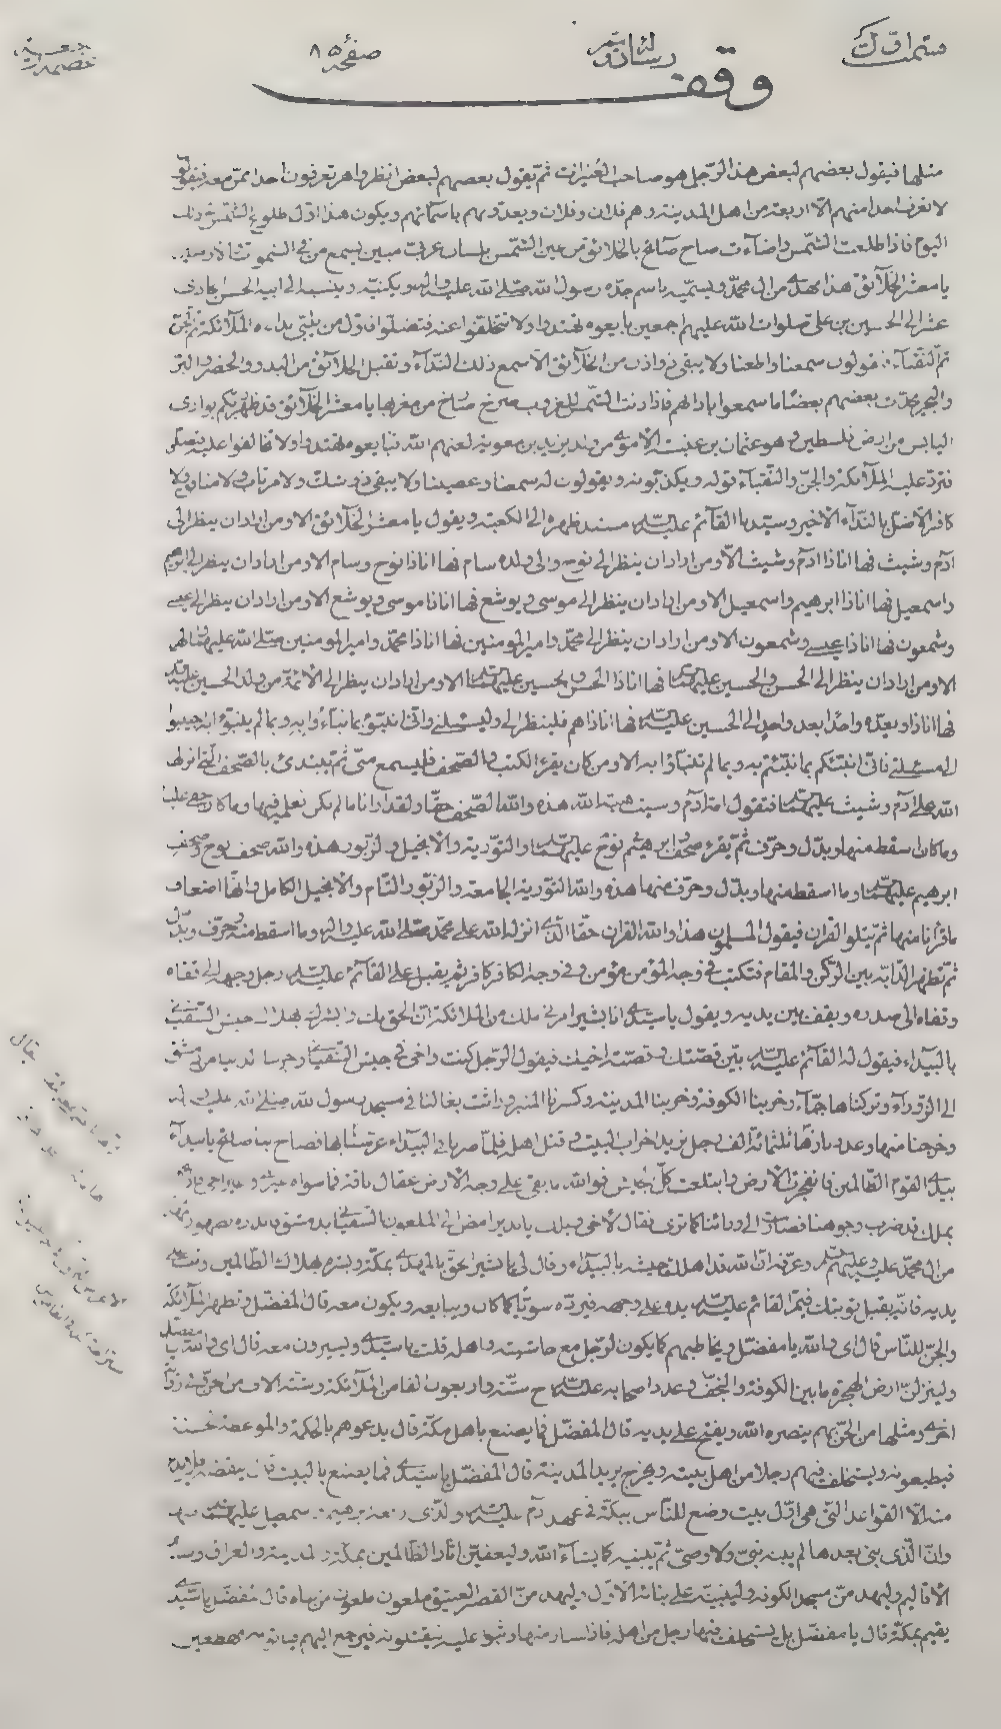 صفحهٔ ٨٥
وقف
مثلها فيقول بعضهم لبعض هذا الرّجل هو صاحب العُنيزات ثمّ يقول بعضهم لبعض انظروا هل تعرفون احدا ممّن معه فيقولون
لا نعرف احدا منهم الّا اربعة من اهل المدينة وهم فلان وفلان ويعدّونهم باسمائهم ويكون هذا اوّل طلوع الشّمس في ذلك
اليوم فاذا طلعت الشّمس واضاءت صاح صائح بالخلائق من عين الشّمس بلسان عربيّ مبين يسمع من في السّموات والارضين
يا معشر الخلائق هذا مهديّ من ال محمّد ويسمّيه باسم جدّه رسول الله صلّى الله عليه واله ويكنّيه وينسبه الى ابيه الحسن الحادى
عشر الى الحسين بن علىّ صلوات الله عليهم اجمعين بايعوه تهتدوا ولا تخلفوا عنه فتضلّوا فاوّل من يلبّى نداءه الملآئكة ثمّ الجنّ
ثمّ النّقباء ويقولون سمعنا واطعنا ولا يبقى ذو اذن من الخلآئق الّا سمع ذلك النّدآء وتقبل الخلآئق من البدو والحضر والبرّ
والبحر يحدّث بعضهم بعضا ما سمعوا باذانهم فاذا دنت الشّمس للغروب صرخ صارخ من مغربها يا معشر الخلآئق قد ظهر ربّكم بوادى
اليابس من ارض فلسطين وهو عثمان بن عنبسة الاموىّ من ولد يزيد بن معوية لعنهم الله فبايعوه تهتدوا ولا تخالفوا عليه فتضلّوا
فتردّ عليه الملآئكة والجنّ والنّقبآء قوله ويكذّبونه ويقولون له سمعنا وعصينا ولا يبقى ذو شكّ ولا مرتاب ولا منافق ولا
كافر الّا ضلّ بالنّدآء الاخير وسيّدنا القآئم عليه السّلام مسند ظهره الى الكعبة ويقول يا معشر الخلآئق الا ومن اراد ان ينظر الى
ادم وشيث فها انا ذا ادم وشيث الا ومن اراد ان ينظر الى نوح والى ولده سام فها انا ذا نوح وسام الا ومن اراد ان ينظر الى ابرهيم
واسمعيل فها انا ذا ابرهيم واسمعيل الا ومن اراد ان ينظر الى موسى ويوشع فها انا ذا موسى ويوشع الا ومن اراد ان ينظر الى عيسى
وشمعون فها انا ذا عيسى وشمعون الا ومن اراد ان ينظر الى محمّد وامير المومنين فها انا ذا محمّد وامير المومنين صلّى الله عليهما والهما
الا ومن اراد ان ينظر الى الحسن والحسين عليهما السّلام فها انا ذا الحسن والحسين عليهما السّلام الا ومن اراد ان ينظر الى الائمّة من ولد الحسين عليه السّلام
فها انا ذا ويعدّه واحدا بعد واحد الى الحسين عليه السّلام فها انا ذا هم فلينظر الى وليسئلنى وانّى انبّئ بما نبّاءوا به وبما لم ينبّؤا به اجيبوا
الى مسئلتى فانّى انبّئكم بما نبّئتم به وبما لم تنبّاؤا به الا ومن كان يقرء الكتب والصّحف فليسمع منّى ثمّ يبتدئ بالصّحف الّتى انزلها
الله على آدم وشيث عليهما السّلام فتقول امّة آدم وشيث هبة الله هذه والله الصّحف حقّا ولقد ارانا ما لم نكن نعلم فيها وما كان خفى علينا
وما كان اسقط منها وبدّل وحرّف ثمّ يقرء صحف ابرهيم ونوح عليهما السّلام والتّورية والانجيل والزّبور هذه والله صحف نوح وصحف
ابرهيم عليهما السّلام وما اسقط منها وبدّل وحرّف منها هذه والله التّورية الجامعة والزّبور التّام والانجيل الكامل وانّها اضعاف
ما قرانا منها ثمّ يتلو القران فيقول المسلمون هذا والله القران حقّا الّذى انزله الله على محمّد صلّى الله عليه واله وما اسقط منه وحرّف وبدّل
ثمّ تظهر الدّابّة بين الرّكن والمقام فتكتب فى وجه المؤمن مؤمن وفى وجه الكافر كافر ثمّ يقبل على القآئم عليه السّلام رجل وجهه الى قفاه
وقفاه الى صدره ويقف بين يديه ويقول يا سيّدى انا بشير امرنى ملك من الملائكة ان الحق بك وابشّرك بهلاك جيش السّفيانى
بالبيدآء فيقول له القآئم عليه السّلام بيّن قصّتك وقصّة اخيك فيقول الرّجل كنت واخى فى جيش السّفيانى وخربنا الدنيا من دمشق
الى الزّورآء وتركناها جمّآء وخربنا الكوفة وخربنا المدينة وكسرنا المنبر وراثت بغالنا فى مسجد رسول الله صلّى الله عليه واله
وخرجنا منها وعددنا ثلثمائة الف رجل نريد اخراب البيت وقتل اهله فلمّا صرنا فى البيدآء عرّسنا بها فصاح بنا صائح يا بيدآء
بيدى القوم الظّالمين فانفجرت الارض وابتلعت كلّ الجيش فوالله ما بقى على وجه الارض عقال ناقة فما سواه غيرى وغير اخى
بملك قد ضرب وجوهنا فصارت الى ورائنا كما ترى فقال لاخى ويلك يا نذير امض الى الملعون السّفيانى بدمشق فانذره بظهور المهدى
من ال محمّد عليه وعليهم السّلام وعرّفه انّ الله قد اهلك جيشه بالبيدآء وقال لى يا بشير الحق بالمهدى بمكّة وبشّره بهلاك الظّالمين وتب على
يديه فانّه يقبل توبتك فيمرّ القائم عليه السّلام يده على وجهه فيردّه سويّا كما كان ويبايعه ويكون معه قال المفضّل وتظهر الملآئكة
والجنّ للنّاس قال اى والله يا مفضّل ويخاطبهم كما يكون الرّجل مع حاشيته واهله قلت يا سيّدى ويسيرون معه قال اى والله يا مفضّل
ولينزلنّ ارض الهجرة ما بين الكوفة والنّجف وعدد اصحابه عليه السّلام ح ستّة واربعون الفا من الملآئكة وستّة الاف من الجنّ وفى رواية
اخرى ومثلها من الجنّ بهم ينصره الله ويفتح على يديه قال المفضّل فما يصنع باهل مكّة قال يدعوهم بالحكمة والموعظة الحسنة
فيطيعونه ويستخلف فيهم رجلا من اهل بيته ويخرج يريد المدينة قال المفضّل يا سيّدى فما يصنع بالبيت قال ينقضه فلا يدع
منه الّا القواعد الّتى هى اوّل بيت وضع للنّاس ببكّة فى عهد آدم عليه السّلام والّذى رفعه ابرهيم واسمعيل عليهما السّلام منها
وانّ الّذى بنى بعدها لم يبنه نبىّ ولا وصىّ ثمّ يبنيه كما يشآء الله وليعفينّ اثار الظّالمين بمكّة والمدينة والعراق وسائر
الاقاليم وليهدمنّ مسجد الكوفة وليبنينّه على بنائه الاوّل وليهدمنّ القصر العتيق ملعون ملعون من بناه قال المفضّل يا سيّدى
يقيم بمكّة قال يا مفضّل بل يستخلف فيها رجل من اهله فاذا سار منها وثبوا عليه فيقتلونه فيرجع اليهم فياتونه مهطعين